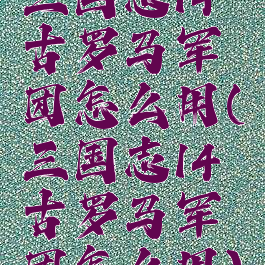 三国志14
古罗马军
团怎么用(
三国志14
古罗马军
团怎么用)